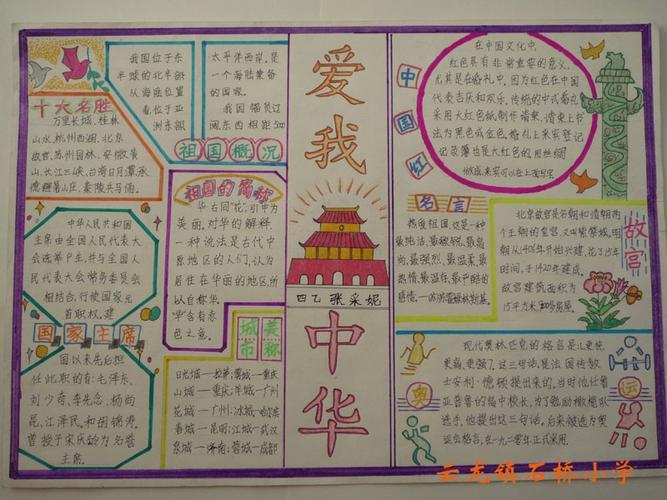 十大名胜
万里长城、桂林
山水、杭州西湖、北京
故宫、苏州园林、安徽黄
山、长江三峡、台湾日月潭、承
德避暑山庄、秦陵兵马俑。
我国位于东
半球的北半部
从海陆位置
看,位于亚
洲东部
太平洋西岸。是
一个海陆兼备
的国家。
我国领员辽
阔东西相距500
祖国概况
中华人民共和国
主席由全国人民代表大
会选举产生,并与全国人
民代表大会常务委员会
相结合,行使国家元
首职权。建
国家主席
国以来先后担
任此职的有:毛泽东、
刘少奇、李先念、杨尚
昆、江泽民、和胡锦涛。
曾授予宋庆龄为名誉
主席。
祖国的简称
华古同“花”,引申为
美丽。对华的解释,
一种说法是古代中
原地区的人们,认为
居住在华丽的地区,所
以自称华
“华”含有赤
色之意。
城市美称
日光城—拉萨;雾城—重庆
山城—重庆;羊城—广州
花城—广州;冰城—哈尔滨
春城—昆明;江城—武汉
泉城—济南;蓉城—成都
爱我中华
四乙张采妮
在中国文化中,
红色具有非常重要的意义,
尤其是在婚礼中,因为红色在中国
代表吉庆和欢乐,传统的中式婚礼
采用大红色纸制作请柬,请柬上书
法为黑色或金色,婚礼上来宾登记
记录簿也是大红色的用丝绸
做成来宾可以在上面写字
中国红
名言
热爱祖国,这是一种
最纯洁、最敏锐、最高
尚、最强烈、最温柔、最
热情、最温存、最严酷的
感情。
北京故宫是明朝和清朝两
个王朝的皇宫,又叫紫禁城,明
朝从1406年开始兴建,花了15年
时间,于1420年建成。
故宫建筑面积为
15平方米
故宫
现代奥林匹克的格言是“更快
更高、更强”。这三句话,是法国传教
士安利·德顿提出来的,当时他任着
亚普鲁的每中校长,为了鼓励橄榄球
选手,他提出这三句话,后来被选为奥
运会格言,在一九二零年正式采用。
奥运
云龙镇石桥小学